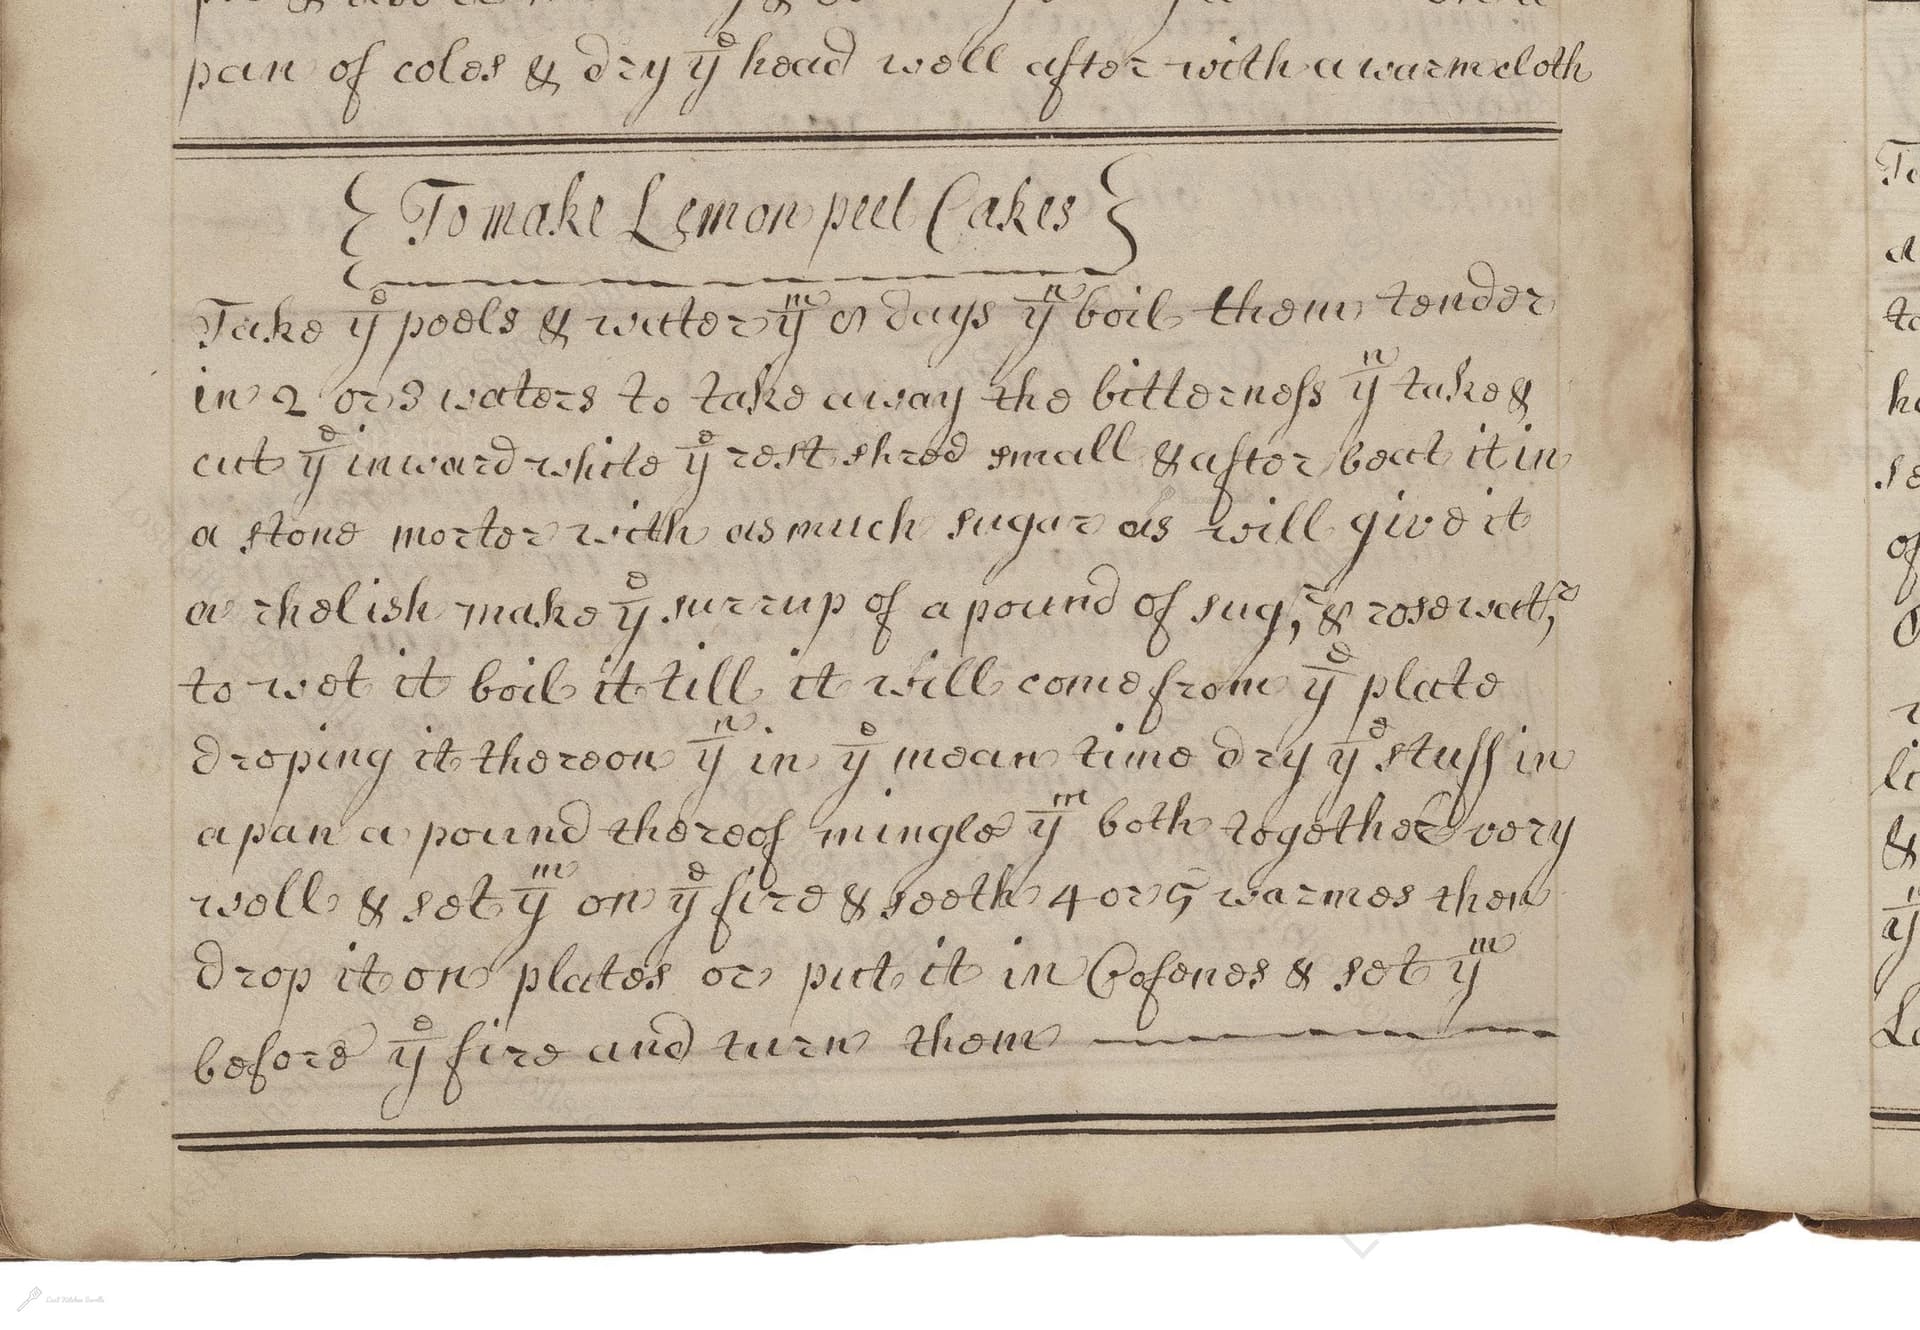 pan of coles & dry yͤ head well after with a warm cloth
{ To make Lemon peel Cakes }
Take yͤ peels & water yᵐ 8 days yⁿ boil them tender
in 2 or 3 waters to take away the bitterness yⁿ take &
cut yͤ inward white yͤ rest shred small & after beat it in
a stone morter with as much sugar as will give it
a rhelish make yͤ surrup of a pound of sugʳ, & rosewatʳ,
to wet it boil it till it will come from yͤ plate
droping it thereon yⁿ in yͤ mean time dry yͤ stuff in
a pan a pound thereof mingle yᵐ both together very
well & set yᵐ on yͤ fire & seeth 4 or 5 warmes then
drop it on plates or put it in Cofenes & set yᵐ
before yͤ fire and turn them